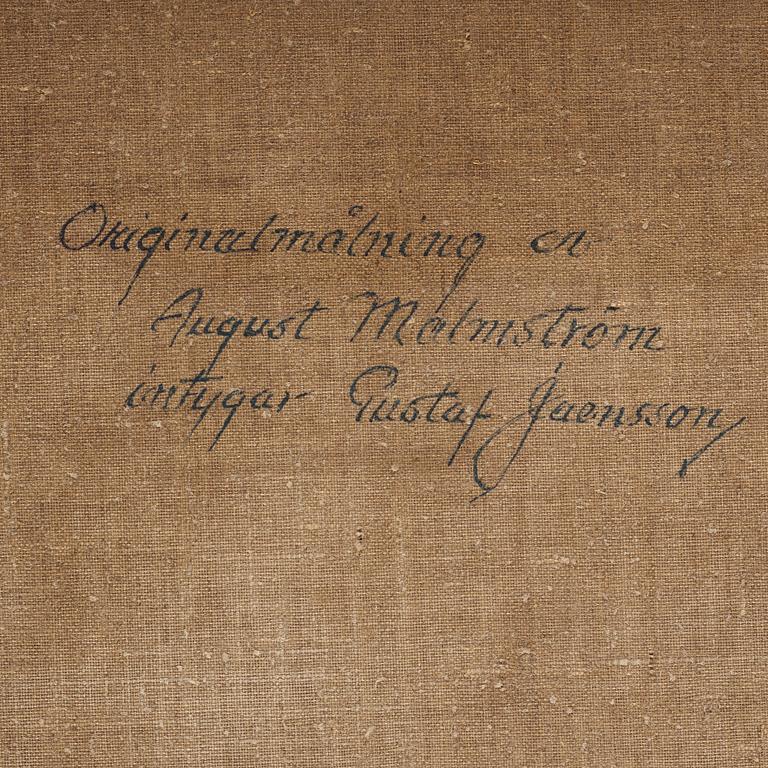 Originalmålning av
August Malmström
intygar Gustaf Jaensson